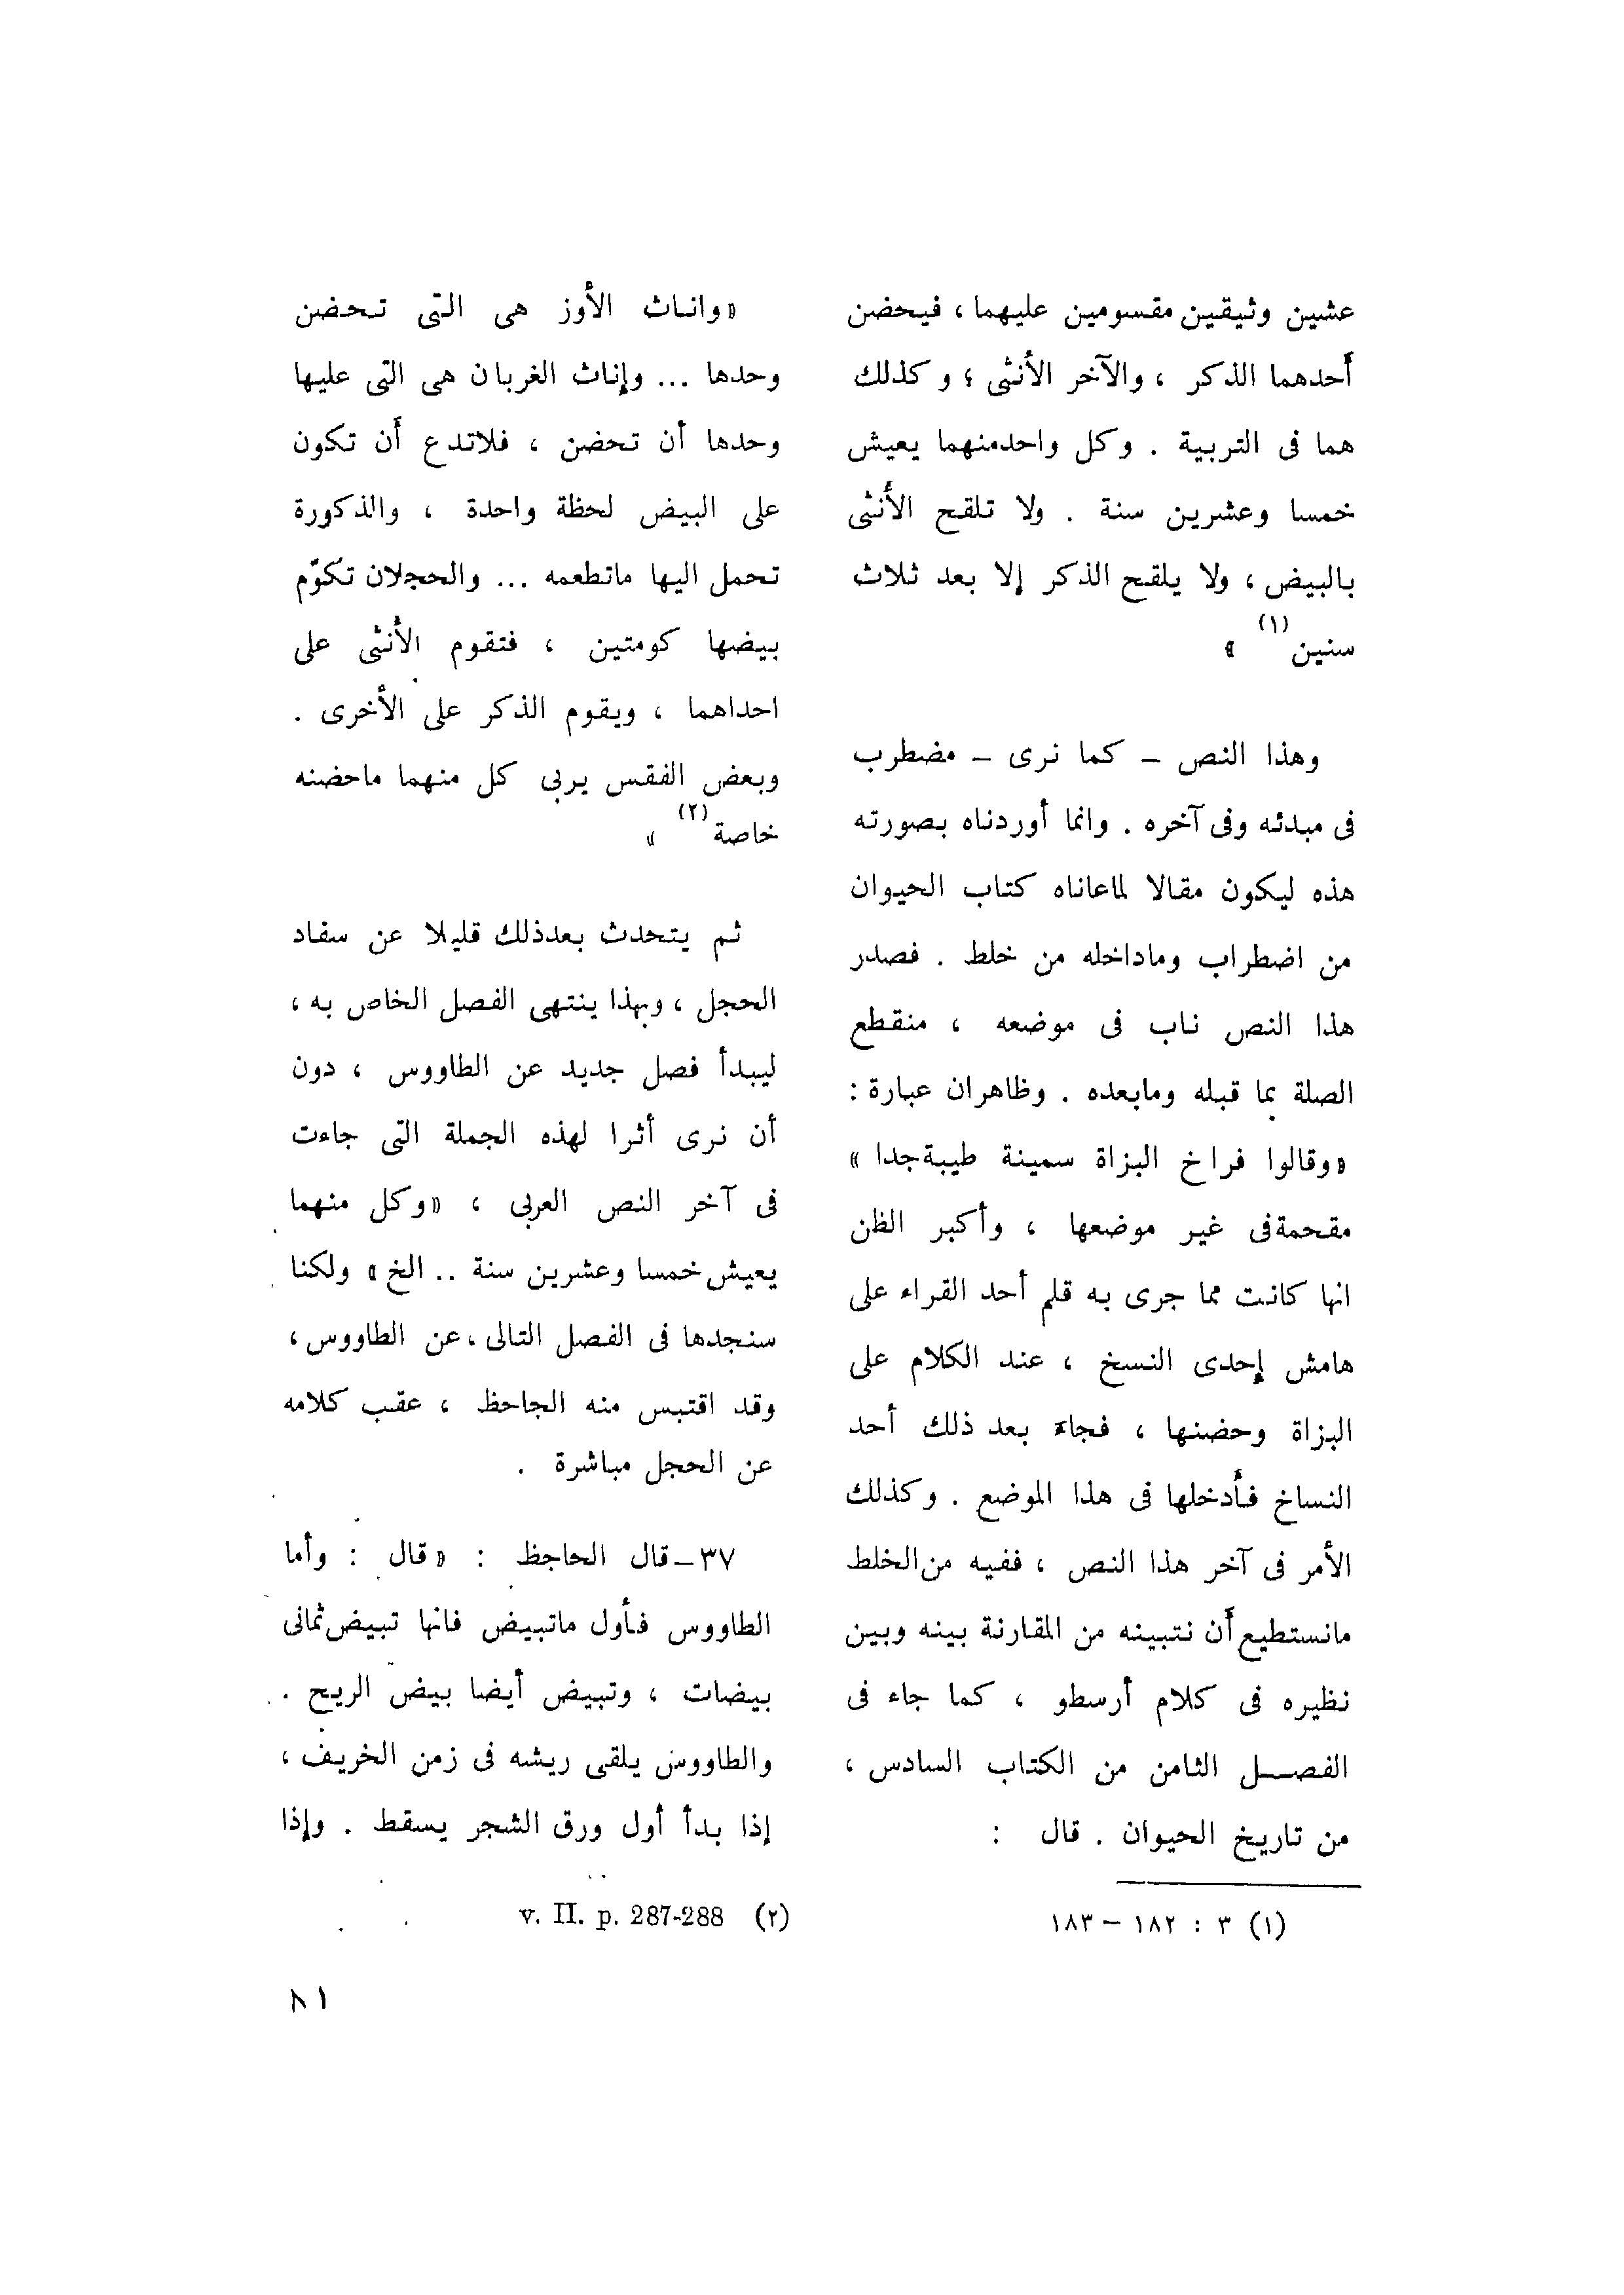 عشين وثيقين مقسومين عليهما ، فيحضن
أحدهما الذكر ، والآخر الأنثى ؛ وكذلك
هما فى التربية . وكل واحدمنهما يعيش
خمسا وعشرين سنة . ولا تلقح الأنثى
بالبيض ، ولا يلقح الذكر إلا بعد ثلاث
سنين (١) »
وهذا النص – كما نرى – مضطرب
فى مبدئه وفى آخره . وانما أوردناه بصورته
هذه ليكون مقالا لماعاناه كتاب الحيوان
من اضطراب وماداخله من خلط . فصدر
هذا النص ناب فى موضعه ، منقطع
الصلة بما قبله ومابعده . وظاهران عبارة :
«وقالوا فراخ البزاة سمينة طيبةجدا »
مقحمةفى غير موضعها ، وأكبر الظن
انها كانت مما جرى به قلم أحد القراء على
هامش إحدى النسخ ، عند الكلام على
البزاة وحضنها ، فجاء بعد ذلك أحد
النساخ فأدخلها فى هذا الموضع . وكذلك
الأمر فى آخر هذا النص ، ففيه من الخلط
مانستطيع أن نتبينه من المقارنة بينه وبين
نظيره فى كلام أرسطو ، كما جاء فى
الفصل الثامن من الكتاب السادس ،
من تاريخ الحيوان . قال :
(١) ٣ : ١٨٢ – ١٨٣
«واناث الأوز هى التى تحضن
وحدها ... وإناث الغربان هى التى عليها
وحدها أن تحضن ، فلاتدع أن تكون
على البيض لحظة واحدة ، والذكورة
تحمل اليها ماتطعمه ... والحجلان تكوّم
بيضها كومتين ، فتقوم الأنثى على
احداهما ، ويقوم الذكر على الأخرى .
وبعض الفقس يربى كل منهما ماحضنه
خاصة (٢) »
ثم يتحدث بعدذلك قليلا عن سفاد
الحجل ، وبهذا ينتهى الفصل الخاص به ،
ليبدأ فصل جديد عن الطاووس ، دون
أن نرى أثرا لهذه الجملة التى جاءت
فى آخر النص العربى ، «وكل منهما
يعيش خمسا وعشرين سنة .. الخ» ولكنا
سنجدها فى الفصل التالى ، عن الطاووس ،
وقد اقتبس منه الجاحظ ، عقب كلامه
عن الحجل مباشرة .
٣٧–قال الجاحظ : «قال : وأما
الطاووس فأول ماتبيض فانها تبيض ثمانى
بيضات ، وتبيض أيضا بيض الريح .
والطاووس يلقى ريشه فى زمن الخريف ،
إذا بدأ أول ورق الشجر يسقط . وإذا
(٢) v. II. p. 287-288
٨١